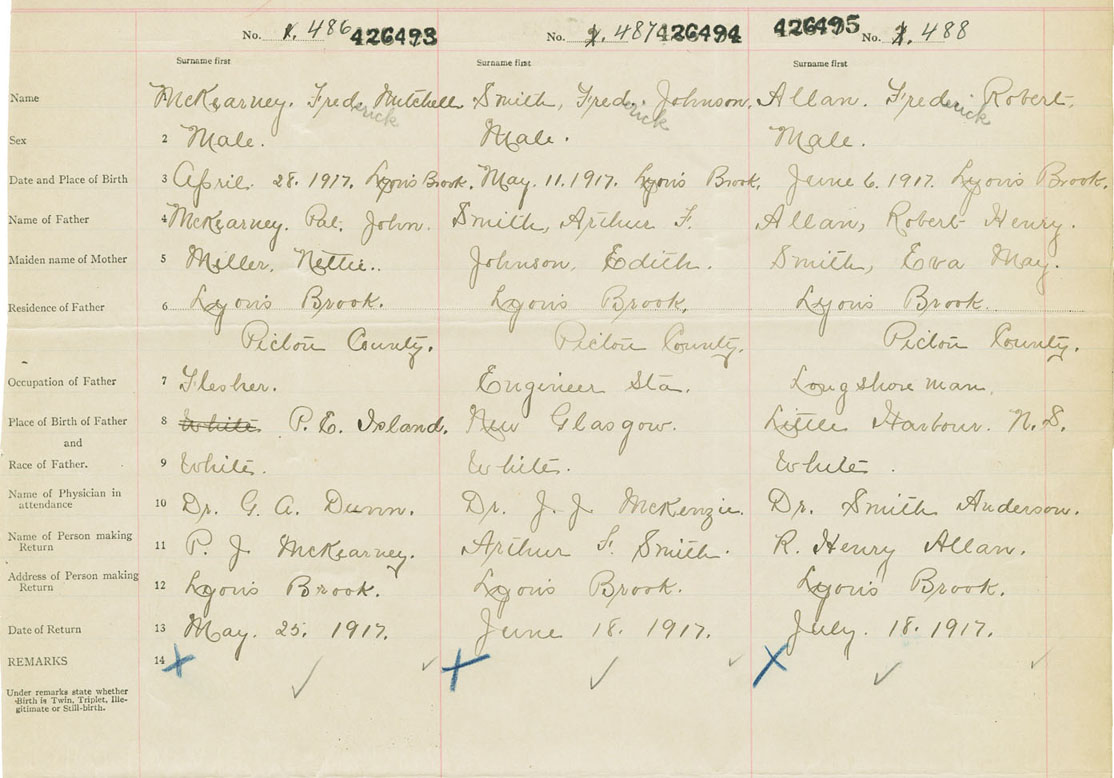 No. 1. 486 426493 No. 2. 487 426494 426495 No. 3. 488
Surname first Surname first Surname first
Name McKearney. Frederick Mitchell Smith, Frederick Johnson. Allan. Frederick Robert.
Sex 2 Male. Male. Male.
Date and Place of Birth 3 April 28. 1917. Lyons Brook. May. 11. 1917. Lyons Brook. June 6. 1917. Lyons Brook.
Name of Father 4 McKearney. Pat. John. Smith, Arthur F. Allan, Robert Henry.
Maiden name of Mother 5 Miller. Nettie. Johnson, Edith. Smith, Eva May.
Residence of Father 6 Lyons Brook. Lyons Brook. Lyons Brook.
Pictou County. Pictou County. Pictou County.
Occupation of Father 7 Flesher. Engineer Sta. Longshore man.
Place of Birth of Father 8 White. P. E. Island. New Glasgow. Little Harbour. N. S.
and
Race of Father. 9 White. White. White.
Name of Physician in
attendance 10 Dr. G. A. Dunn. Dr. J. J. McKenzie. Dr. Smith Anderson.
Name of Person making
Return 11 P. J. McKearney. Arthur F. Smith. R. Henry Allan.
Address of Person making
Return 12 Lyons Brook. Lyons Brook. Lyons Brook.
Date of Return 13 May. 25, 1917. June 18. 1917. July. 18. 1917.
REMARKS 14
Under remarks state whether
Birth is Twin, Triplet, Ille-
gitimate or Still-birth.